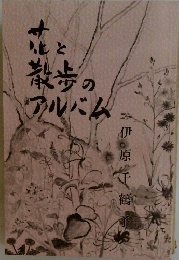 花と
散歩の
アルバム
伊原千鶴